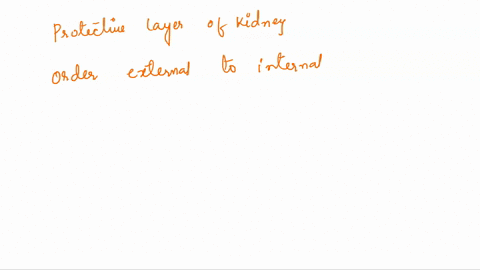 Protective layer of kidney
order external to internal